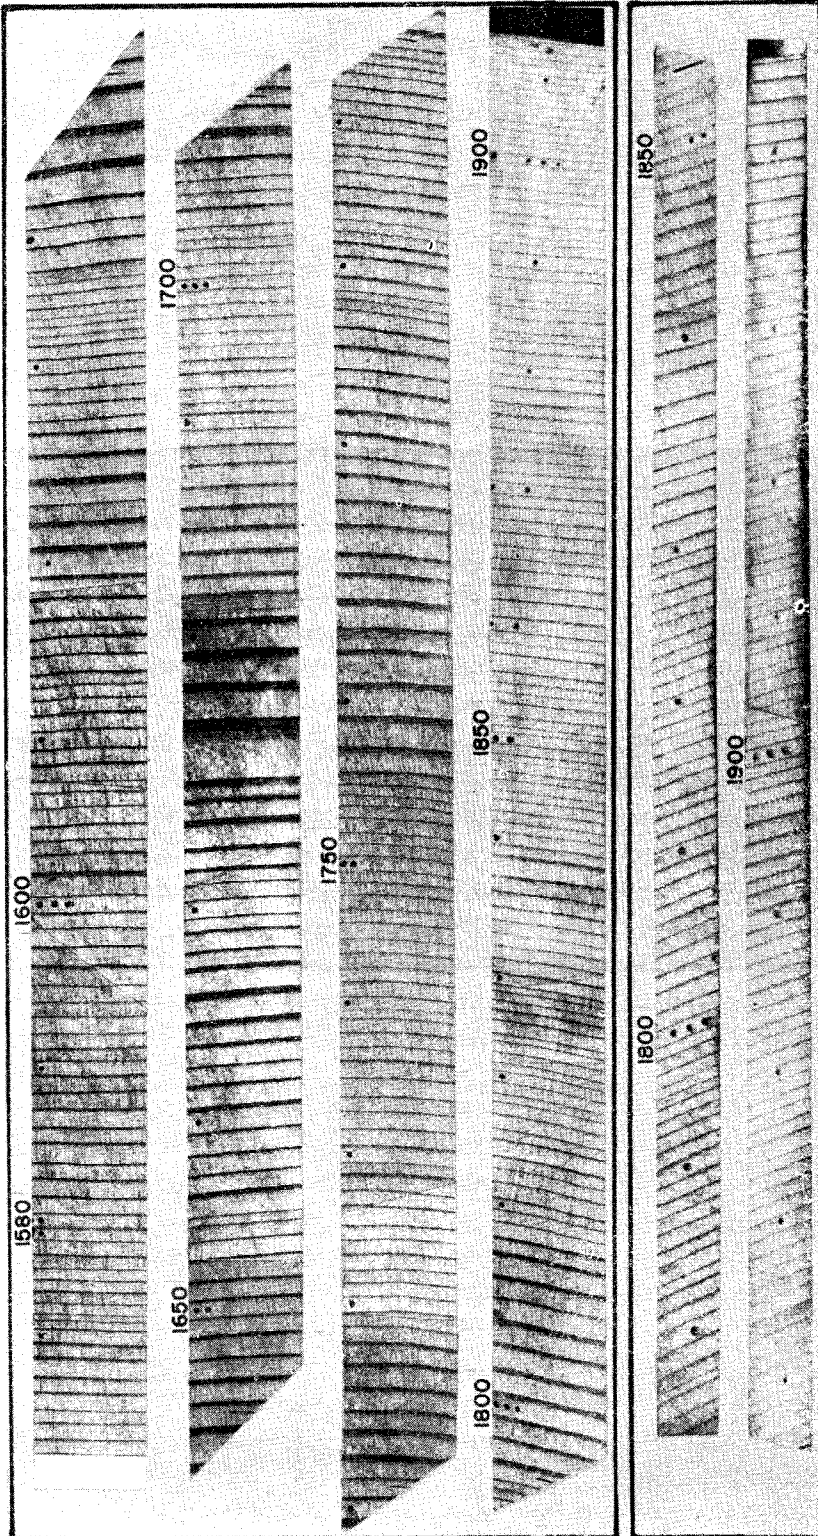 1580
1600
1650
1700
1750
1800
1850
1900
1800
1850
1900